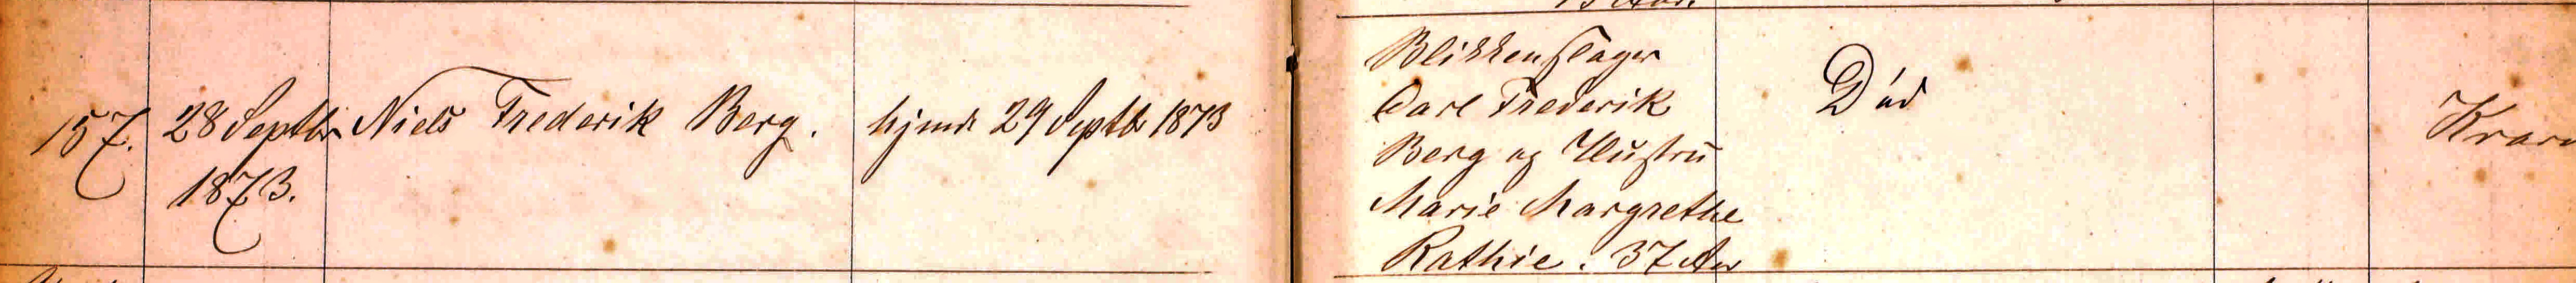 157.
28 Septbr
1873.
Niels Frederik Berg.
hjemd 29 Septb 1873
Blikkenslager
Carl Frederik
Berg og Hustru
Marie Margrethe
Rathie. 37 Aar
Död